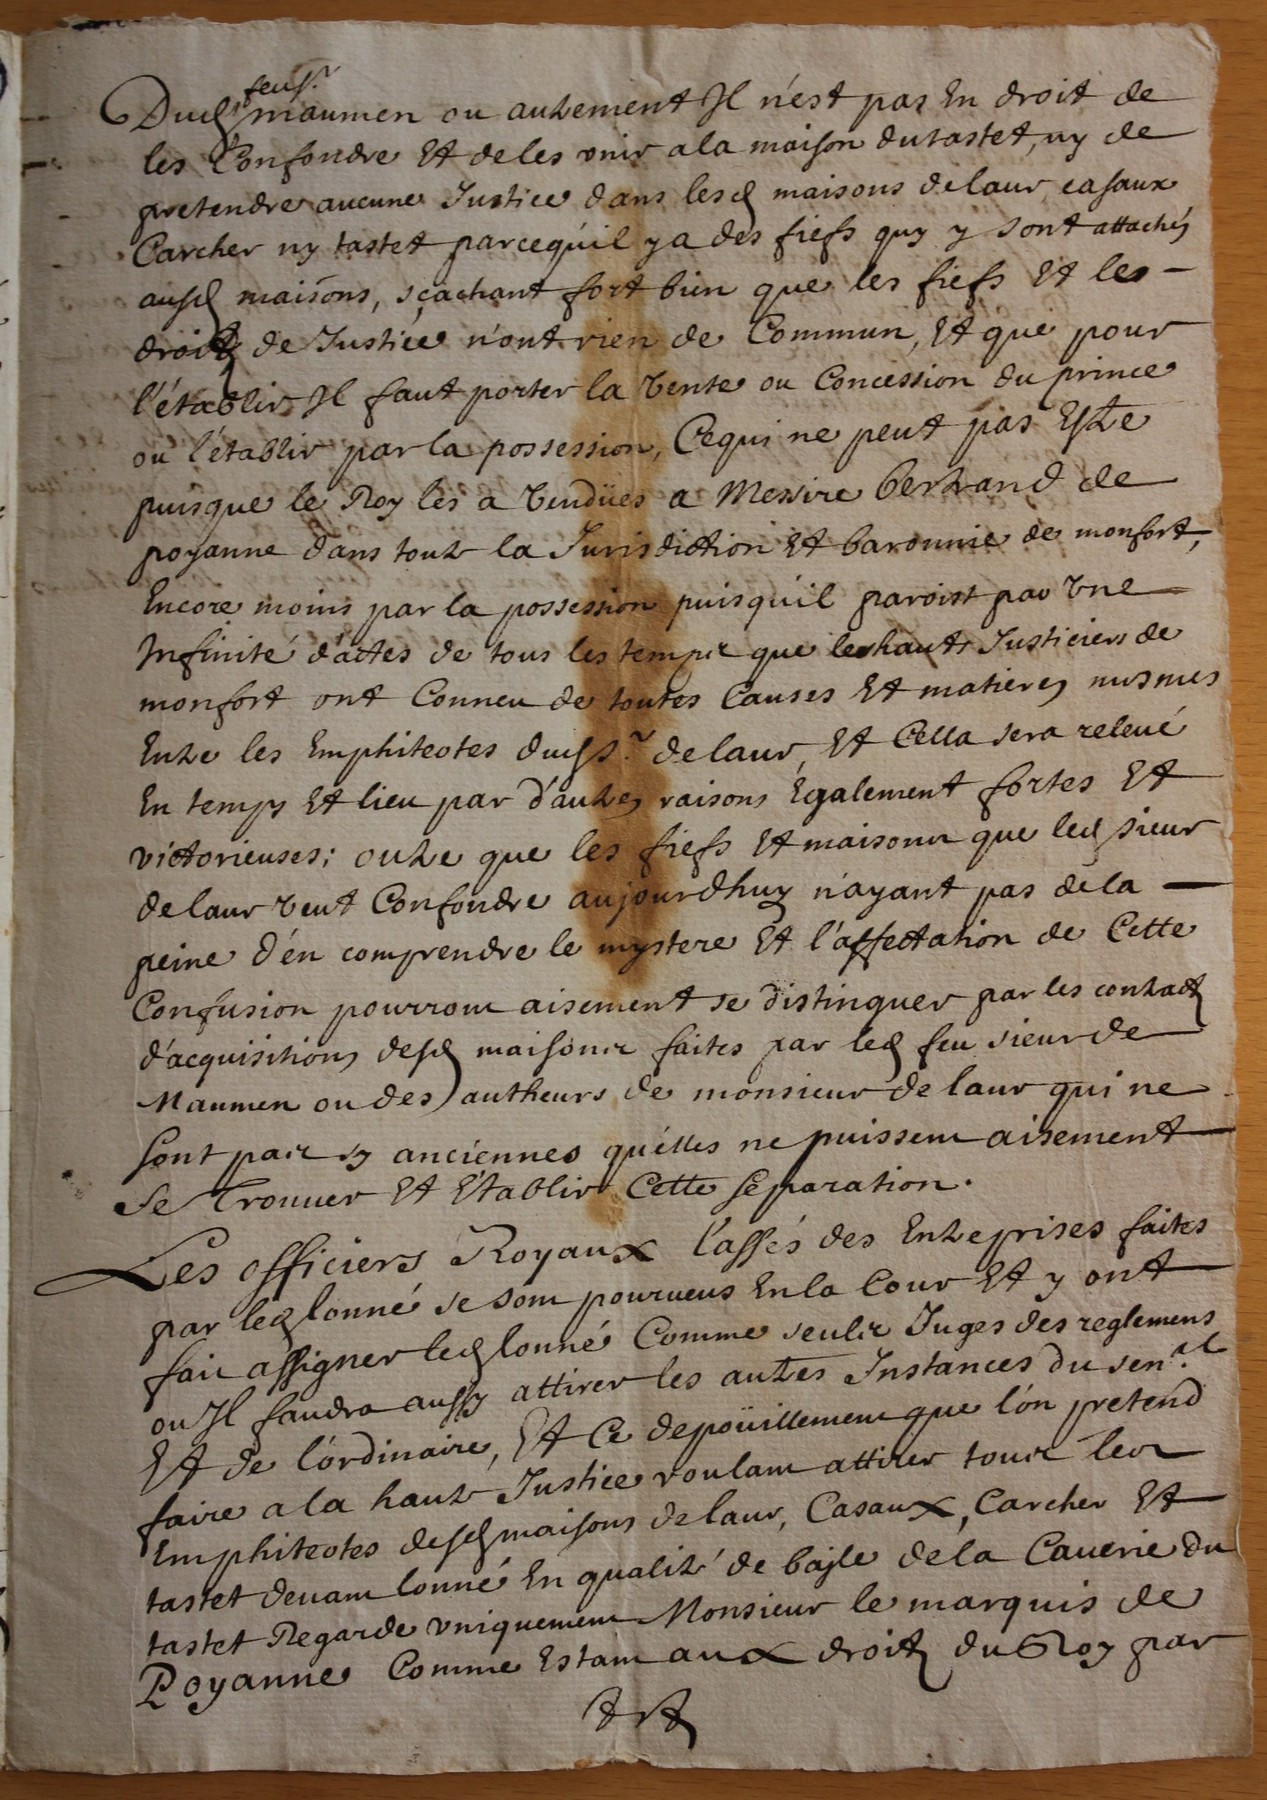 feu sr
Dud maumen ou autrement Il n'est pas En droit de
les Confondre Et de les vnir a la maison du tastet, ny de
pretendre aucune Justice dans lesd maisons delaur, casaux
Carcher ny tastet parcequ'il y a des fiefs quy y sont attachés
ausd maisons, sçachant fort bien que les fiefs Et les
droits de Justice n'ont rien de Commun, Et que pour
l'établir Il faut porter la Vente ou Concession du prince
ou l'établir par la possession, Ce qui ne peut pas Estre
puisque le Roy les a Vendües a Messire bertrand de
poyanne dans toute la Jurisdiction Et baronnie de monfort,
Encore moins par la possession puisqu'il paroist par Vne
Infinité d'actes de tous les temps que les hauts Justiciers de
monfort ont Conneu de toutes Causes Et matieres mesmes
Entre les Emphiteotes dud sr. delaur, Et Cella sera releué
En temps Et lieu par d'autres raisons Egalement fortes Et
victorieuses; outre que les fiefs Et maisons que led sieur
delaur veut Confondre aujourdhuy n'ayant pas de la
peine d'en comprendre le mystere Et l'affectation de Cette
Confusion pourront aisement se distinguer par les contracts
d'acquisitions desd maisons faites par led feu sieur de
Maumen ou des autheurs de monsieur de laur qui ne
sont pas sy anciennes qu'elles ne puissent aisement
se Trouuer Et Etablir Cette separation.
Les officiers Royaux l'assés des Entreprises faites
par led lonné se sont pourueus En la Cour Et y ont
fait assigner led lonné Comme seuls Juges des reglemens
ou Il faudra aussy attirer les autres Instances du senal
Et de l'ordinaire, Et Ce depoüillement que l'on pretend
faire a la haute Justice voulant attirer tous les
Emphiteotes desd maisons delaur, Casaux, Carcher Et
tastet deuant lonné En qualité de bayle de la Cauerie du
tastet Regarde vniquement Monsieur le marquis de
Poyanne Comme Estant aux droits du Roy par